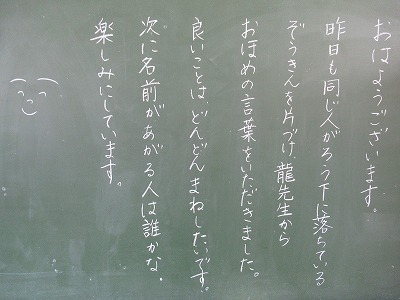 おはようございます。
昨日も同じ人がろう下に落ちている
ぞうきんを片づけ、龍先生から
おほめの言葉をいただきました。
良いことは、どんどんまねしたいです。
次に名前があがる人は誰かな。
楽しみにしています。